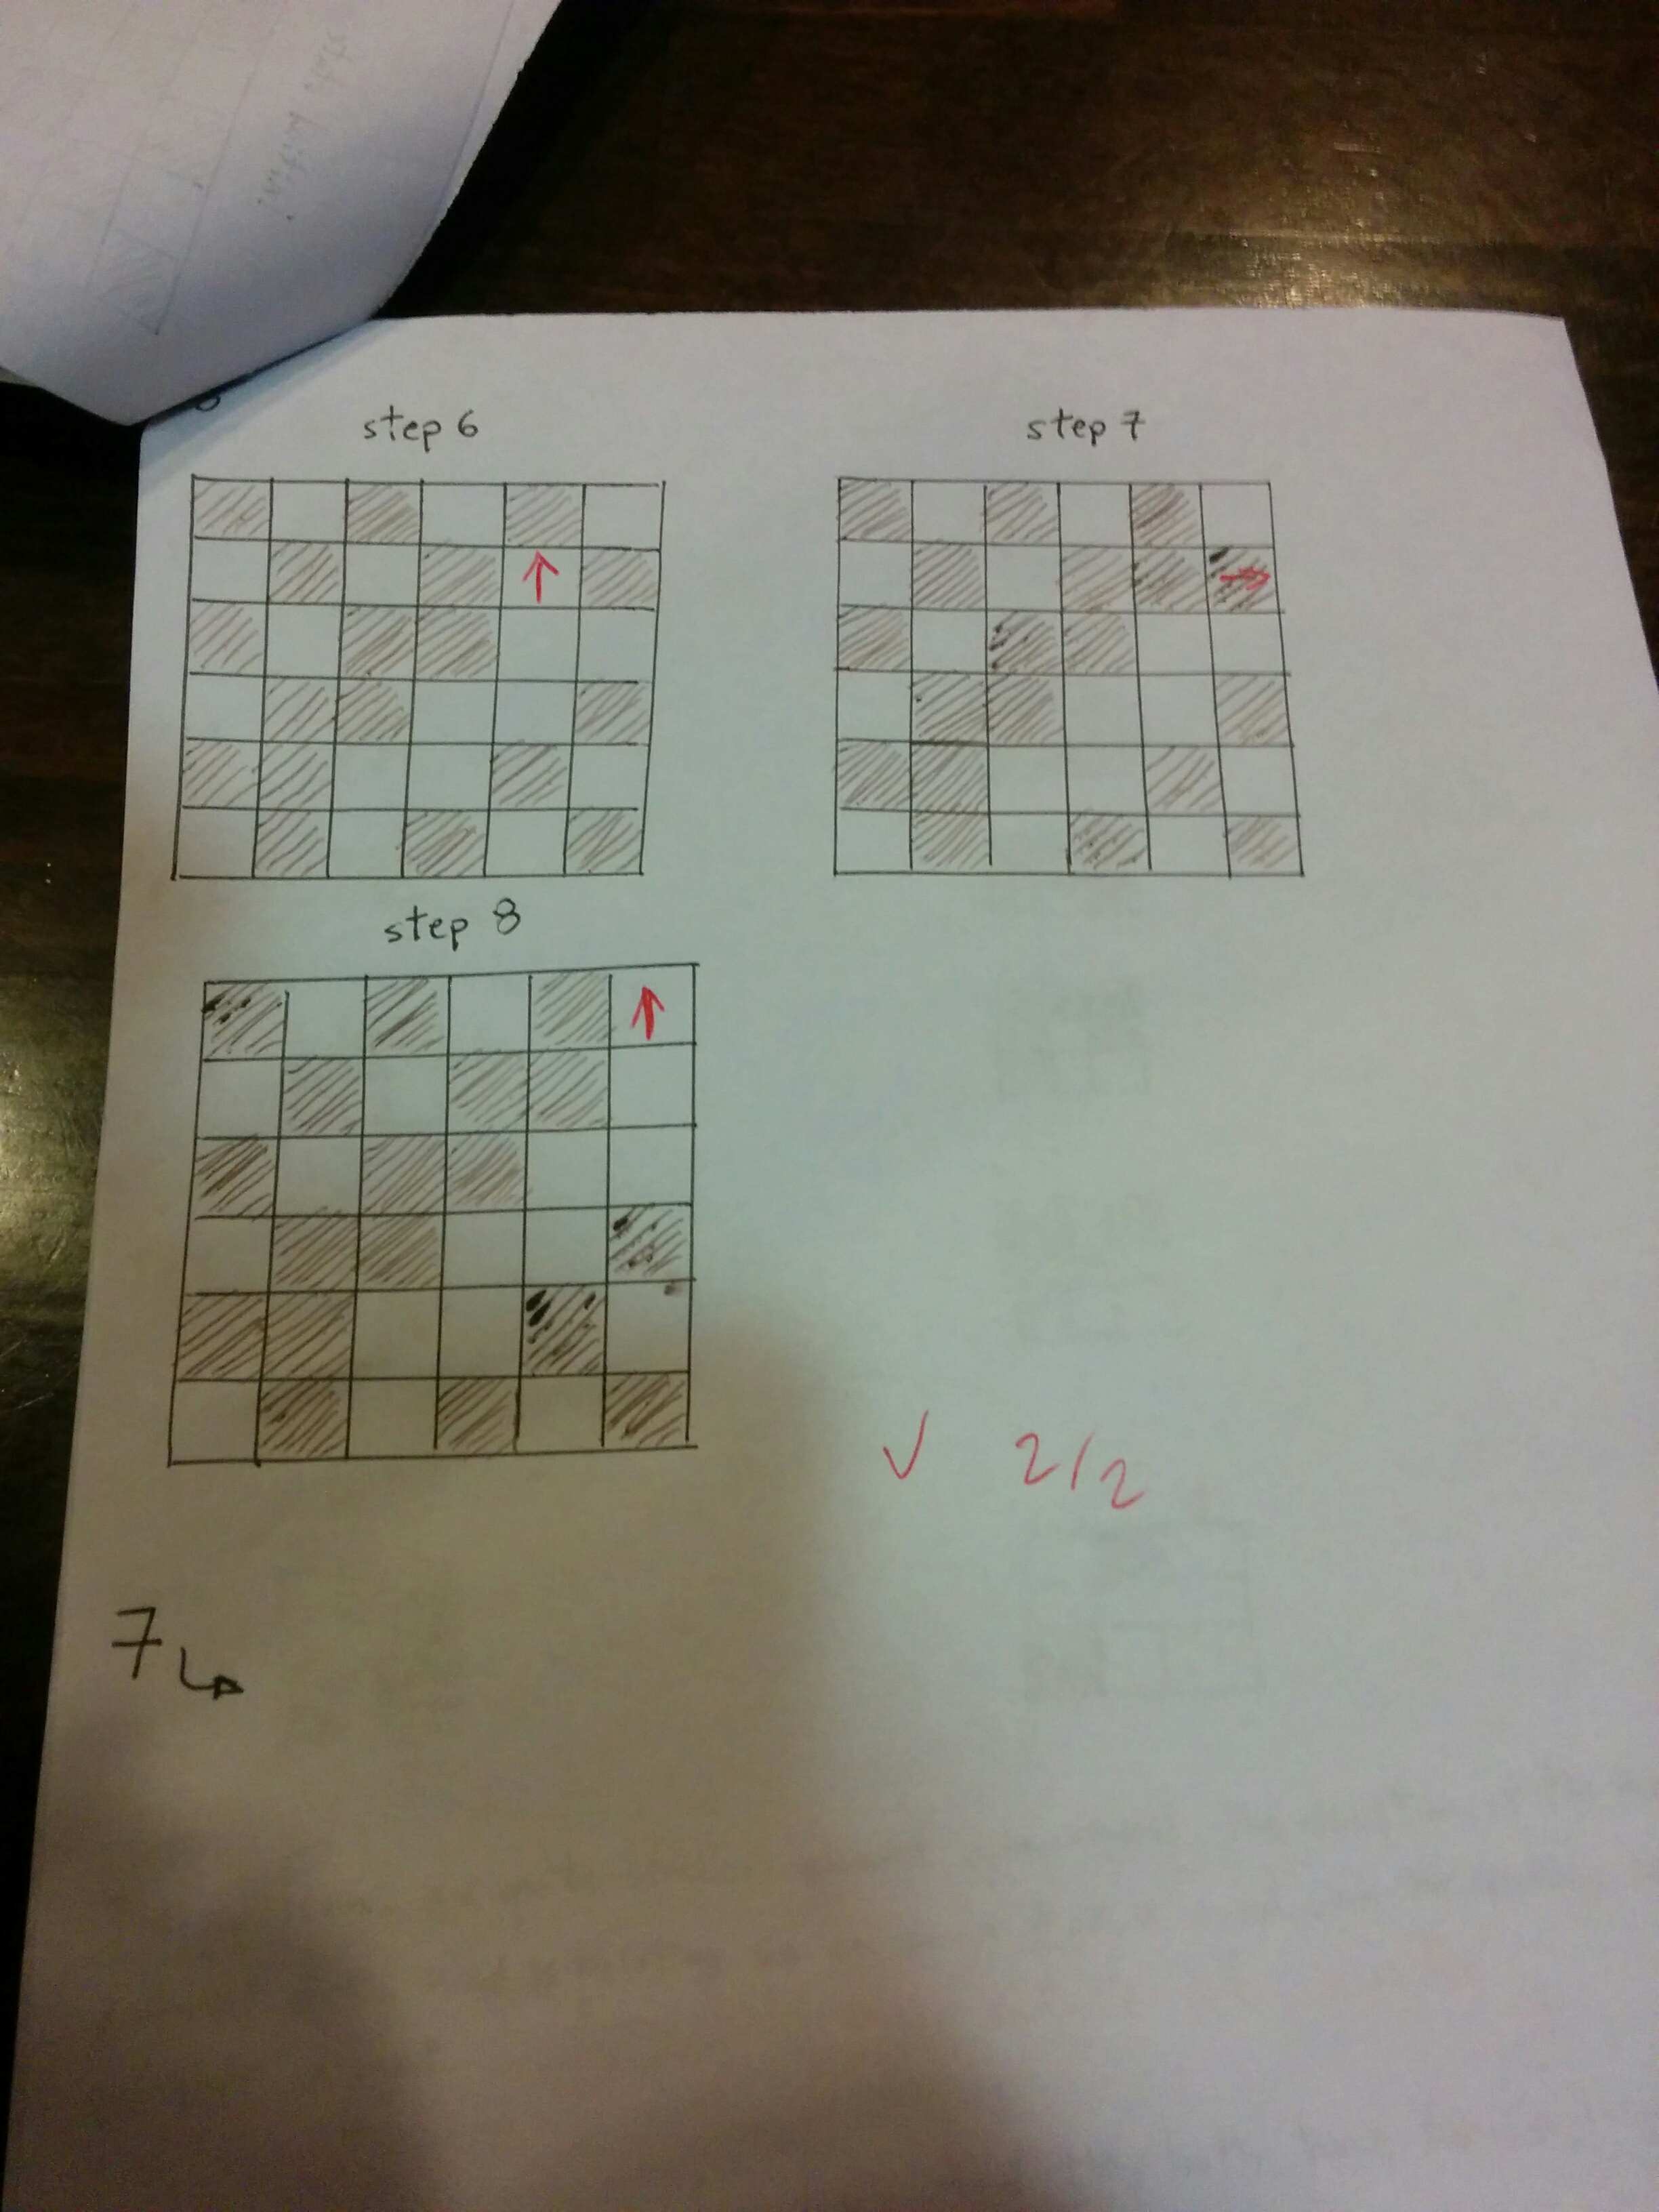 step 6
step 7
step 8
✓ 2/2
7